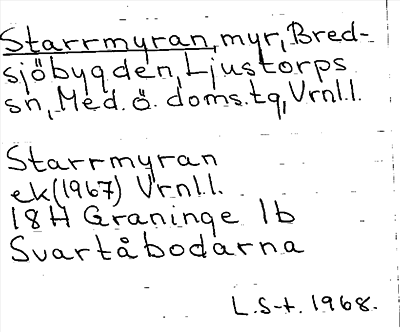 Starrmyran, myr, Bred-
sjöbygden, Ljustorps
sn, Med. ö. doms.tg, Vrnl.l.
Starrmyran
ek (1967) Vrnl.l.
18H Graninge 1b
Svartåbodarna
L.S-t. 1968.